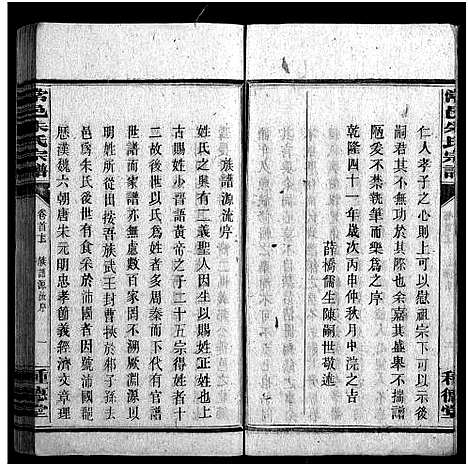 常邑朱氏宗譜
仁人孝子之心則上可以慰祖宗下可以示後
嗣君其不無功於其際也余嘉其盛舉不揣譾
陋爰不禁執筆而樂為之序
乾隆四十一年歲次丙申仲秋月中浣之吉
薛橋儒生陳嗣世敬撰
種德堂
族譜源流序
姓氏之興有二義聖人因生以賜姓正姓也上
古賜姓少晉語黃帝之子二十五宗得姓者十
二故後世以氏為姓者多周秦而下代有官譜
世譜而家譜亦無慮數百家罔不溯厥淵源以
明姓所從出按吾族武王封曹挾於邾子孫去
邑為朱氏後世有食采於沛國者因號沛國龍
歷漢魏六朝唐宋元明忠孝節義經濟文章理
常邑朱氏宗譜
卷首
族譜源流序
一
種德堂